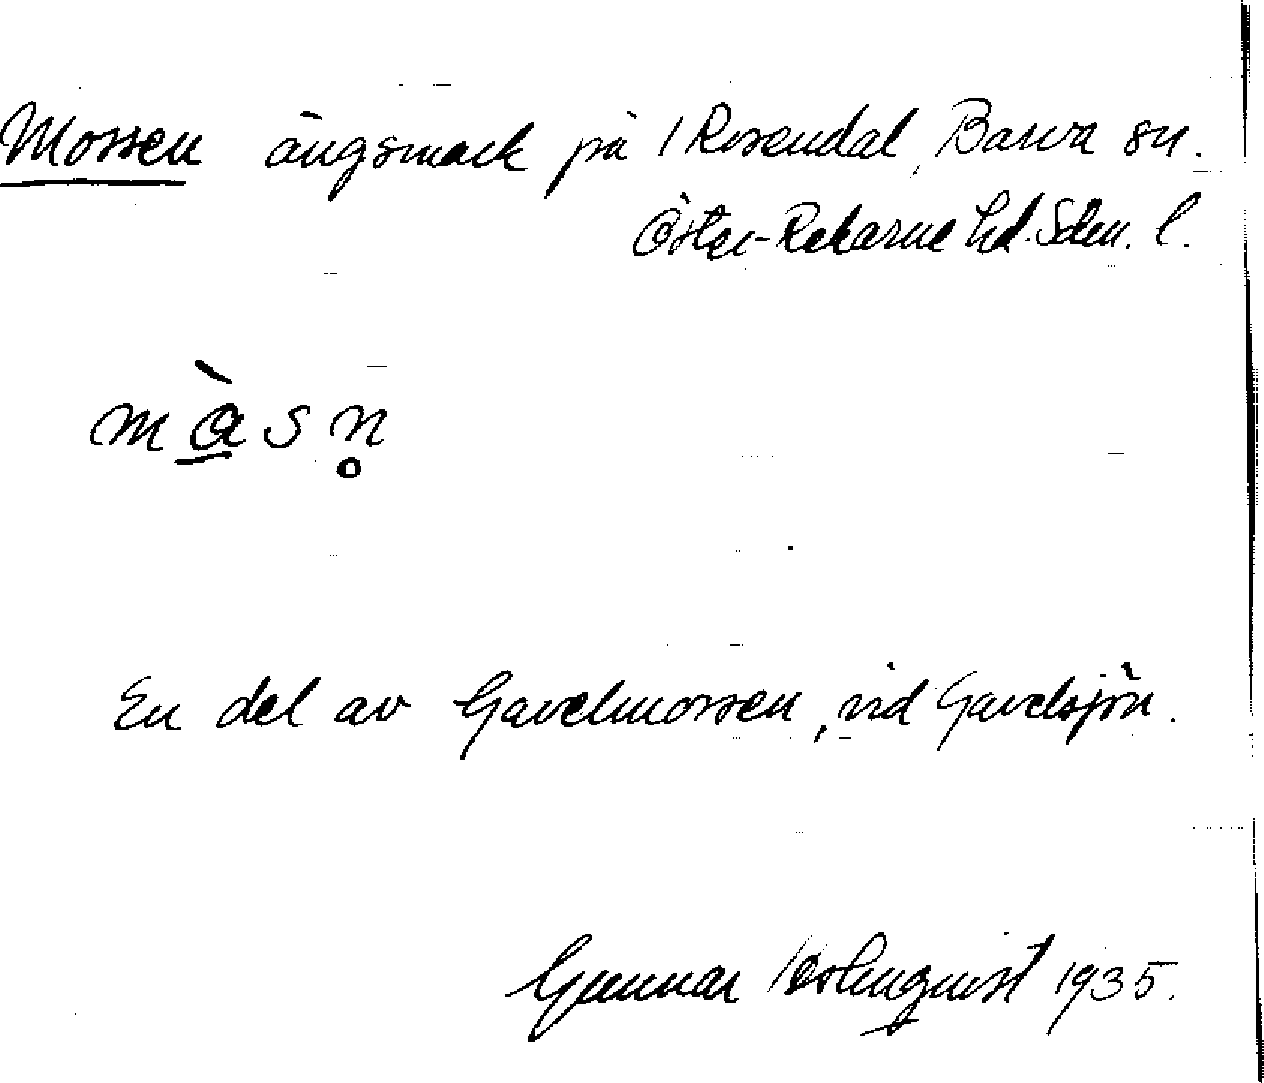 Mossen ängsmark på 1 Rosendal, Barva sn.
Öster-Rekarne hd. Södm. l.
màsn̥
En del av Gavelmossen, vid Gavelsjön.
Gunnar Holmquist 1935.